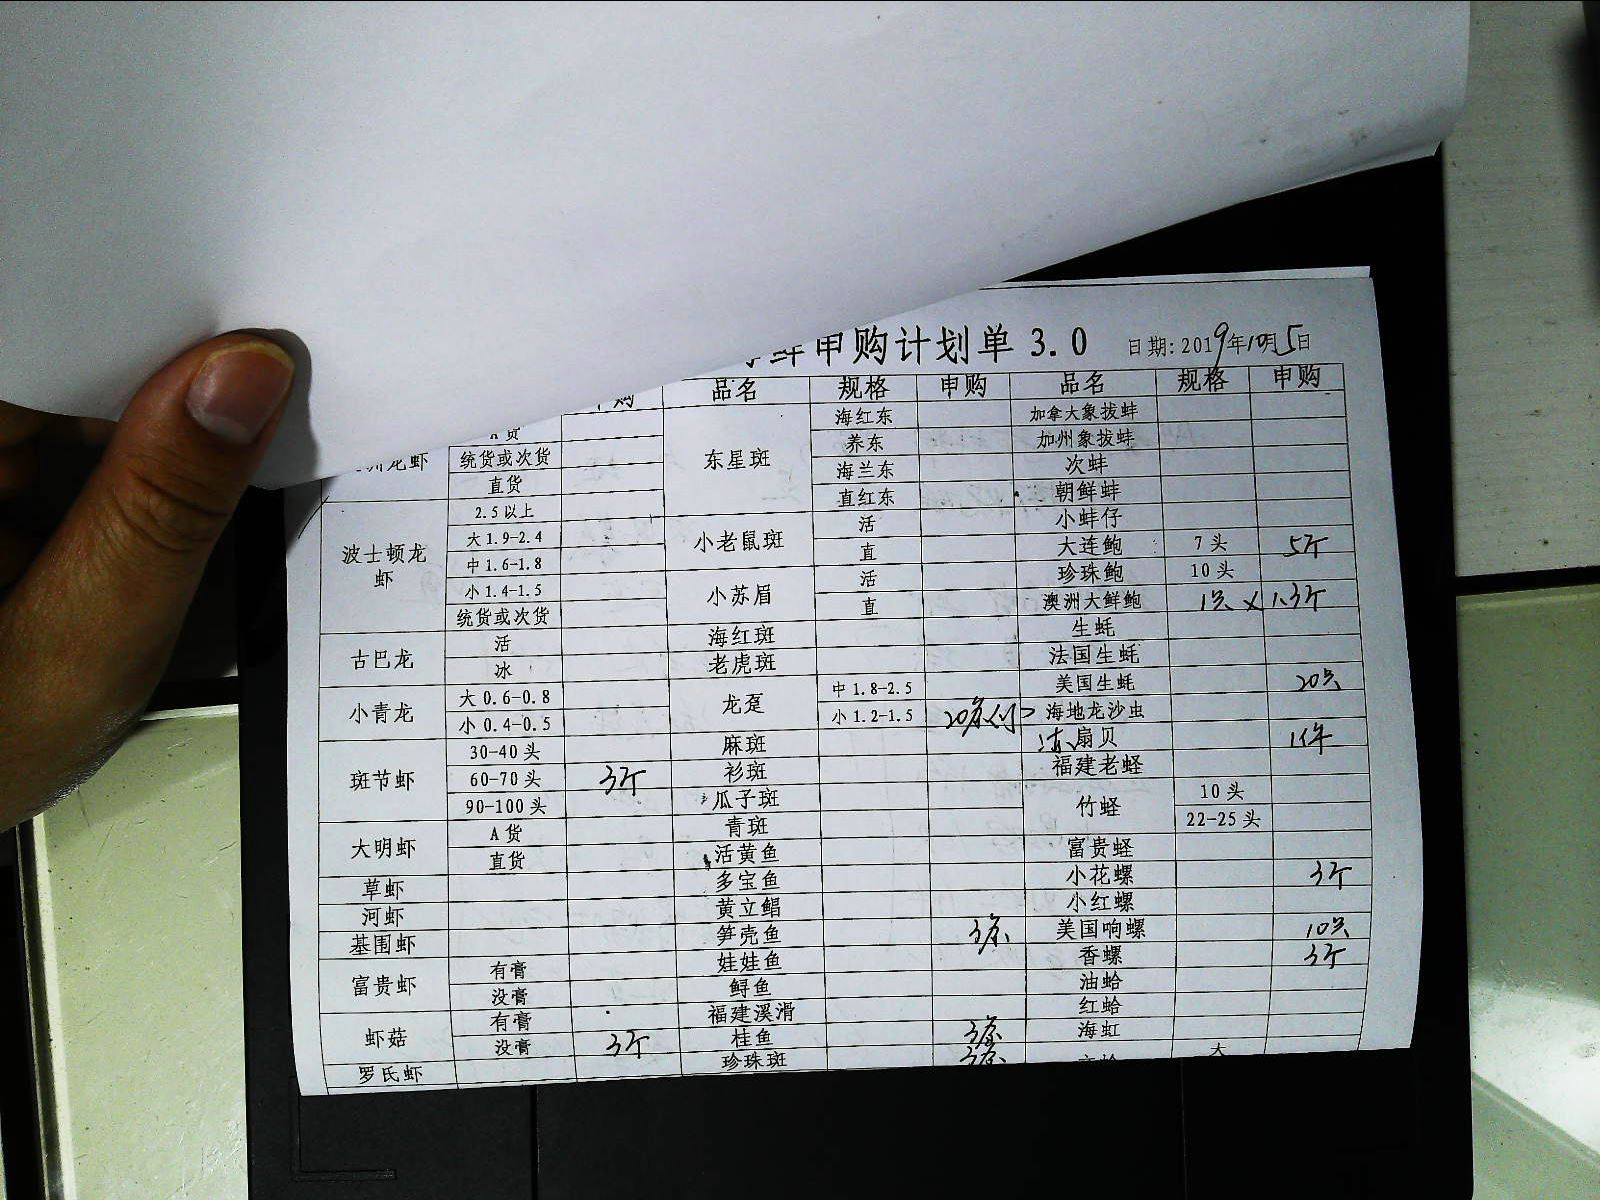 申购计划单 3.0 日期: 2019年10月5日
品名 规格 申购 品名 规格 申购
海红东 加拿大象拔蚌
龙虾 统货或次货 东星斑 养东 加州象拔蚌
直货 海兰东 次蚌
2.5以上 直红东 朝鲜蚌
波士顿龙虾 大1.9-2.4 小老鼠斑 活 小蚌仔
中1.6-1.8 直 大连鲍 7头 5斤
小1.4-1.5 小苏眉 活 珍珠鲍 10头
统货或次货 直 澳洲大鲜鲍 1只 x 1.3斤
古巴龙 活 海红斑 生蚝
冰 老虎斑 法国生蚝
小青龙 大0.6-0.8 龙趸 中1.8-2.5 美国生蚝 20只
小0.4-0.5 小1.2-1.5 海地龙沙虫
斑节虾 30-40头 麻斑 扇贝 1件
60-70头 3斤 衫斑 福建老蛏
90-100头 瓜子斑 竹蛏 10头
大明虾 A货 青斑 22-25头
直货 活黄鱼 富贵蛏
草虾 多宝鱼 小花螺 3斤
河虾 黄立鲳 小红螺
基围虾 笋壳鱼 3条 美国响螺 10只
富贵虾 有膏 娃娃鱼 香螺 3斤
没膏 鲟鱼 油蛤
虾菇 有膏 福建溪滑 红蛤
没膏 3斤 桂鱼 3条 海虹
罗氏虾 珍珠斑 3条 大